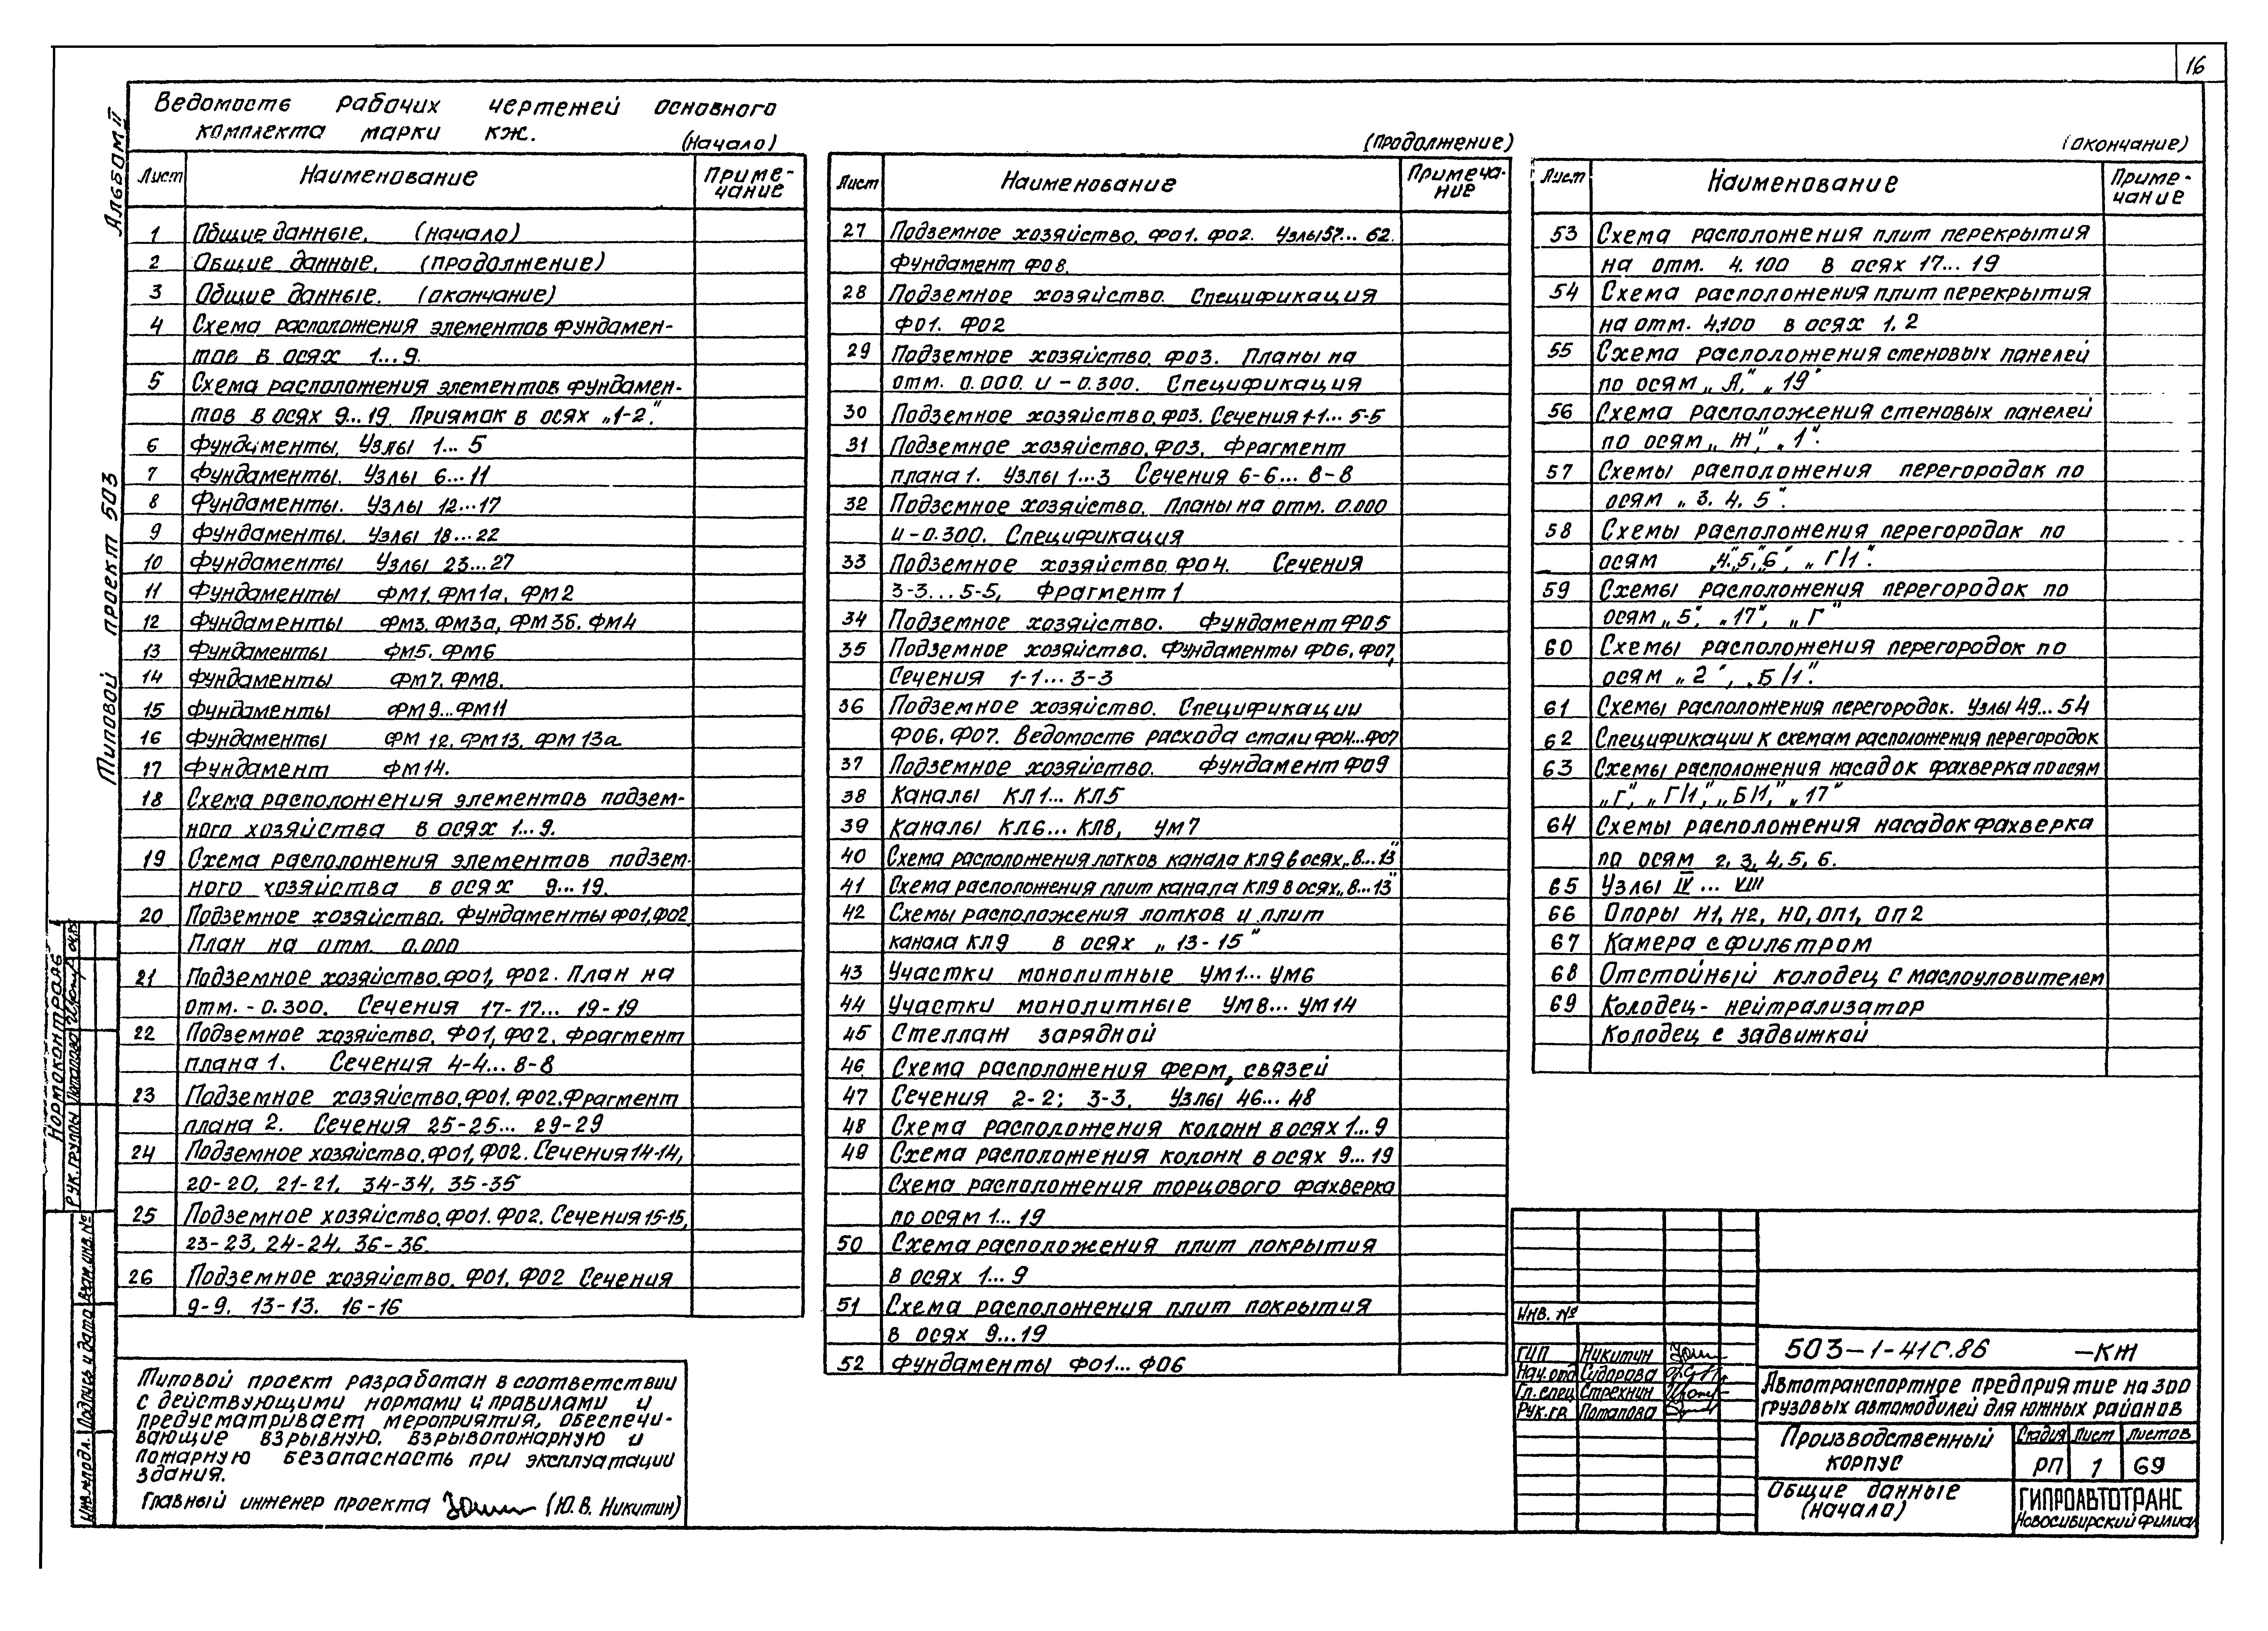 16
Альбом II
Типовой проект 503
Ведомость рабочих чертежей основного
комплекта марки КЖ.
(Начало)
Лист Наименование Приме-
чание
1 Общие данные. (начало)
2 Общие данные. (продолжение)
3 Общие данные. (окончание)
4 Схема расположения элементов фундамен-
тов в осях 1...9.
5 Схема расположения элементов фундамен-
тов в осях 9...19. Приямок в осях „1-2".
6 Фундаменты. Узлы 1...5
7 Фундаменты. Узлы 6...11
8 Фундаменты. Узлы 12...17
9 Фундаменты. Узлы 18...22
10 Фундаменты Узлы 23...27
11 Фундаменты ФМ1. ФМ1а. ФМ2
12 Фундаменты ФМ3. ФМ3а, ФМ3б. ФМ4
13 Фундаменты ФМ5. ФМ6
14 Фундаменты ФМ7. ФМ8.
15 Фундаменты ФМ9...ФМ11
16 Фундаменты ФМ12. ФМ13. ФМ13а
17 Фундамент ФМ14.
18 Схема расположения элементов подзем-
ного хозяйства в осях 1...9.
19 Схема расположения элементов подзем-
ного хозяйства в осях 9...19.
20 Подземное хозяйство. Фундаменты Ф01, Ф02
План на отм. 0.000
21 Подземное хозяйство. Ф01, Ф02. План на
отм. -0.300. Сечения 17-17... 19-19
22 Подземное хозяйство. Ф01, Ф02. Фрагмент
плана 1. Сечения 4-4... 8-8
23 Подземное хозяйство. Ф01. Ф02. Фрагмент
плана 2. Сечения 25-25... 29-29
24 Подземное хозяйство. Ф01, Ф02. Сечения 14-14,
20-20, 21-21, 34-34, 35-35
25 Подземное хозяйство. Ф01. Ф02. Сечения 15-15,
23-23, 24-24, 36-36.
26 Подземное хозяйство. Ф01, Ф02 Сечения
9-9. 13-13. 16-16
(продолжение)
Лист Наименование Примеча-
ние
27 Подземное хозяйство. Ф01. Ф02. Узлы 57... 62.
Фундамент Ф08.
28 Подземное хозяйство. Спецификация
Ф01. Ф02
29 Подземное хозяйство. Ф03. Планы на
отм. 0.000. и -0.300. Спецификация
30 Подземное хозяйство. Ф03. Сечения 1-1... 5-5
31 Подземное хозяйство. Ф03. Фрагмент
плана 1. Узлы 1...3 Сечения 6-6... 8-8
32 Подземное хозяйство. Планы на отм. 0.000
и -0.300. Спецификация
33 Подземное хозяйство Ф04. Сечения
3-3... 5-5, Фрагмент 1
34 Подземное хозяйство. Фундамент Ф05
35 Подземное хозяйство. Фундаменты Ф06, Ф07,
Сечения 1-1... 3-3
36 Подземное хозяйство. Спецификации
Ф06, Ф07. Ведомость расхода стали Ф04...Ф07
37 Подземное хозяйство. Фундамент Ф09
38 Каналы КЛ1... КЛ5
39 Каналы КЛ6... КЛ8, УМ7
40 Схема расположения лотков канала КЛ9 в осях „8...13"
41 Схема расположения плит канала КЛ9 в осях „8...13"
42 Схемы расположения лотков и плит
канала КЛ9 в осях „13-15"
43 Участки монолитные УМ1... УМ6
44 Участки монолитные УМ8... УМ14
45 Стеллаж зарядной
46 Схема расположения ферм, связей
47 Сечения 2-2; 3-3. Узлы 46... 48
48 Схема расположения колонн в осях 1...9
49 Схема расположения колонн в осях 9...19
Схема расположения торцового фахверка
по осям 1...19
50 Схема расположения плит покрытия
в осях 1...9
51 Схема расположения плит покрытия
в осях 9...19
52 Фундаменты Ф01... Ф06
(окончание)
Лист Наименование Приме-
чание
53 Схема расположения плит перекрытия
на отм. 4.100 в осях 17...19
54 Схема расположения плит перекрытия
на отм. 4.100 в осях 1. 2
55 Схема расположения стеновых панелей
по осям „А," „19"
56 Схема расположения стеновых панелей
по осям „Ж," „1".
57 Схемы расположения перегородок по
осям „3. 4. 5".
58 Схемы расположения перегородок по
осям „4",„5",„6", „Г/1".
59 Схемы расположения перегородок по
осям „5", „17", „Г"
60 Схемы расположения перегородок по
осям „2", „Б/1".
61 Схемы расположения перегородок. Узлы 49... 54
62 Спецификации к схемам расположения перегородок
63 Схемы расположения насадок фахверка по осям
„Г", „Г/1", „Б/1", „17"
64 Схемы расположения насадок фахверка
по осям 2, 3, 4, 5, 6.
65 Узлы IV ... VIII
66 Опоры Н1, Н2, НО, ОП1, ОП2
67 Камера с фильтром
68 Отстойный колодец с маслоуловителем
69 Колодец-нейтрализатор
Колодец с задвижкой
Нормоконтроль
Рук. группы Потапова
Инв.№подл. Подпись и дата Взам.инв.№
Типовой проект разработан в соответствии
с действующими нормами и правилами и
предусматривает мероприятия, обеспечи-
вающие взрывную, взрывопожарную и
пожарную безопасность при эксплуатации
здания.
Главный инженер проекта (Ю.В. Никитин)
Инв. №
ГИП Никитин
Нач.отд Сидорова
Гл.спец Стрехнин
Рук.гр. Потапова
503-1-41С.86 -КЖ
Автотранспортное предприятие на 300
грузовых автомобилей для южных районов
Производственный
корпус
Стадия Лист Листов
РП 1 69
Общие данные
(начало)
ГИПРОАВТОТРАНС
Новосибирский филиал